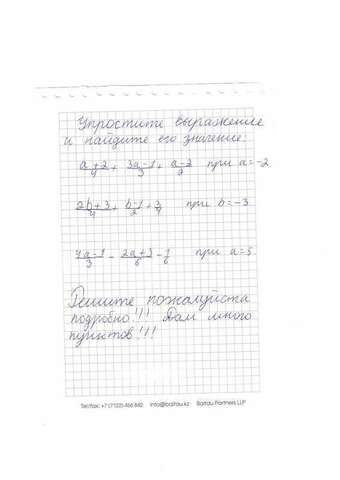 Упростите выражение
и найдите его значение:
a+2/4 + 3a-1/3 + a-2/2 при a=-2
2b+3/4 + b-1/2 + 3/4 при b=-3
4a-1/3 - 2a+3/6 - 1/6 при a=5
Решите пожалуйста
подробно!!! Дам много
пунктов!!!
Tel/fax: +7 (7122) 466 882 info@baitau.kz Baitau Partners LLP